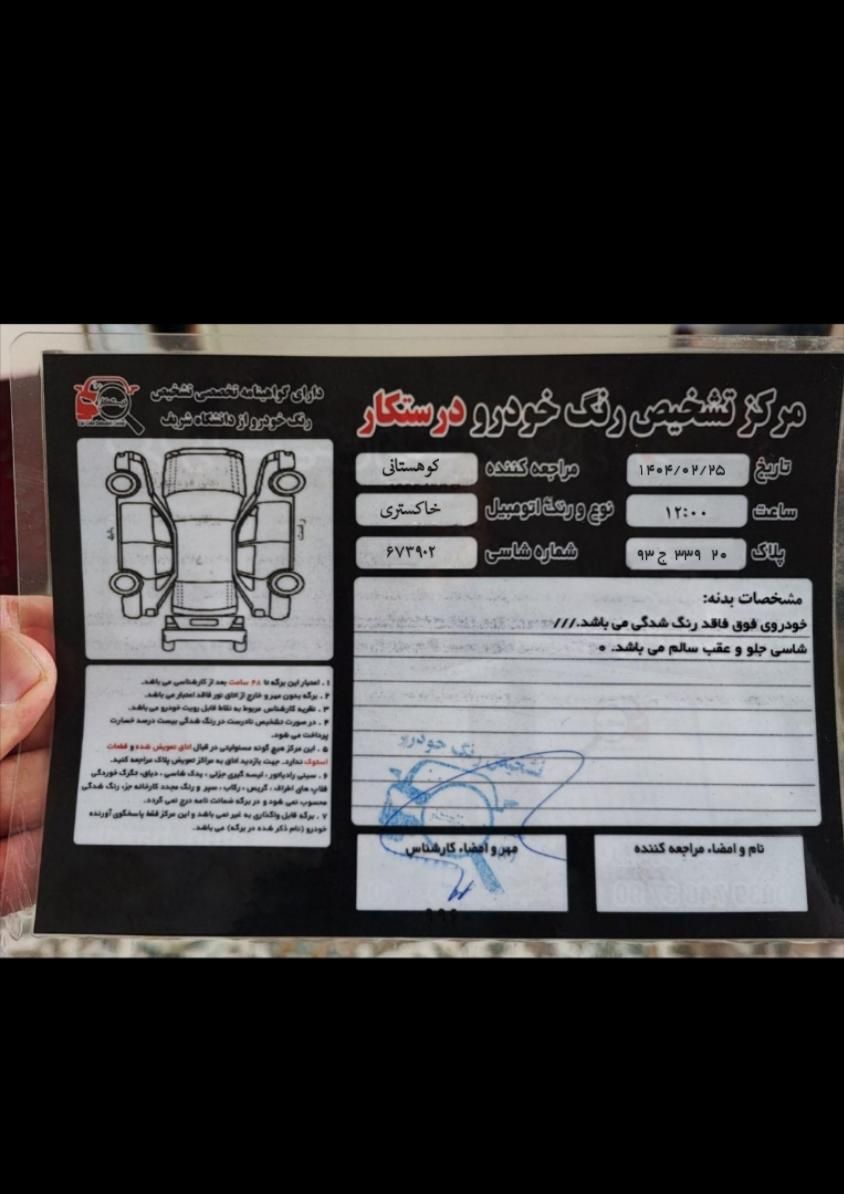 مرکز تشخیص رنگ خودرو درستکار
تاریخ ۱۴۰۴/۰۲/۲۵ مراجعه کننده کوهستانی
ساعت ۱۲:۰۰ نوع و رنگ اتومبیل خاکستری
پلاک ۲۰ ۳۳۹ ج ۹۳ شماره شاسی ۶۷۳۹۰۲
مشخصات بدنه:
خودروی فوق فاقد رنگ شدگی می باشد.///
شاسی جلو و عقب سالم می باشد. ۰
تشخیص رنگ خودرو
نام و امضاء مراجعه کننده
مهر و امضاء کارشناس
دارای گواهینامه تخصصی تشخیص
رنگ خودرو از دانشگاه شریف
راست
۱ . اعتبار این برگه تا ۴۸ ساعت بعد از کارشناسی می باشد.
۲ . برگه بدون مهر و خارج از اتاق نور فاقد اعتبار می باشد.
۳ . نظریه کارشناس مربوط به نقاط قابل رویت خودرو می باشد.
۴ . در صورت تشخیص نادرست در رنگ شدگی بیست درصد خسارت
پرداخت می شود.
۵ . این مرکز هیچ گونه مسئولیتی در قبال اتاق تعویض شده و قطعات
استوک ندارد. جهت بازدید اتاق به مراکز تعویض پلاک مراجعه کنید.
۶ . سینی رادیاتور ، لیسه گیری جزئی ، یدک شاسی ، دیاق، تگرگ خوردگی
قلاب های اطراف ، گریس ، رکاب ، سپر و رنگ مجدد کارخانه جزء رنگ شدگی
محسوب نمی شود و در برگه ضمانت نامه درج نمی گردد.
۷ . برگه قابل واگذاری به غیر نمی باشد و این مرکز فقط پاسخگوی آورنده
خودرو (نام ذکر شده در برگه) می باشد.